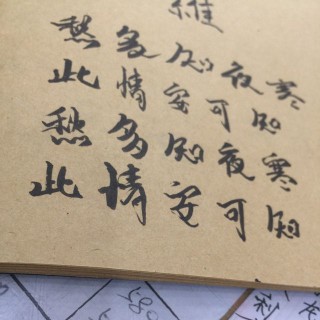 維
愁多知夜寒
此情安可知
愁多知夜寒
此情安可知